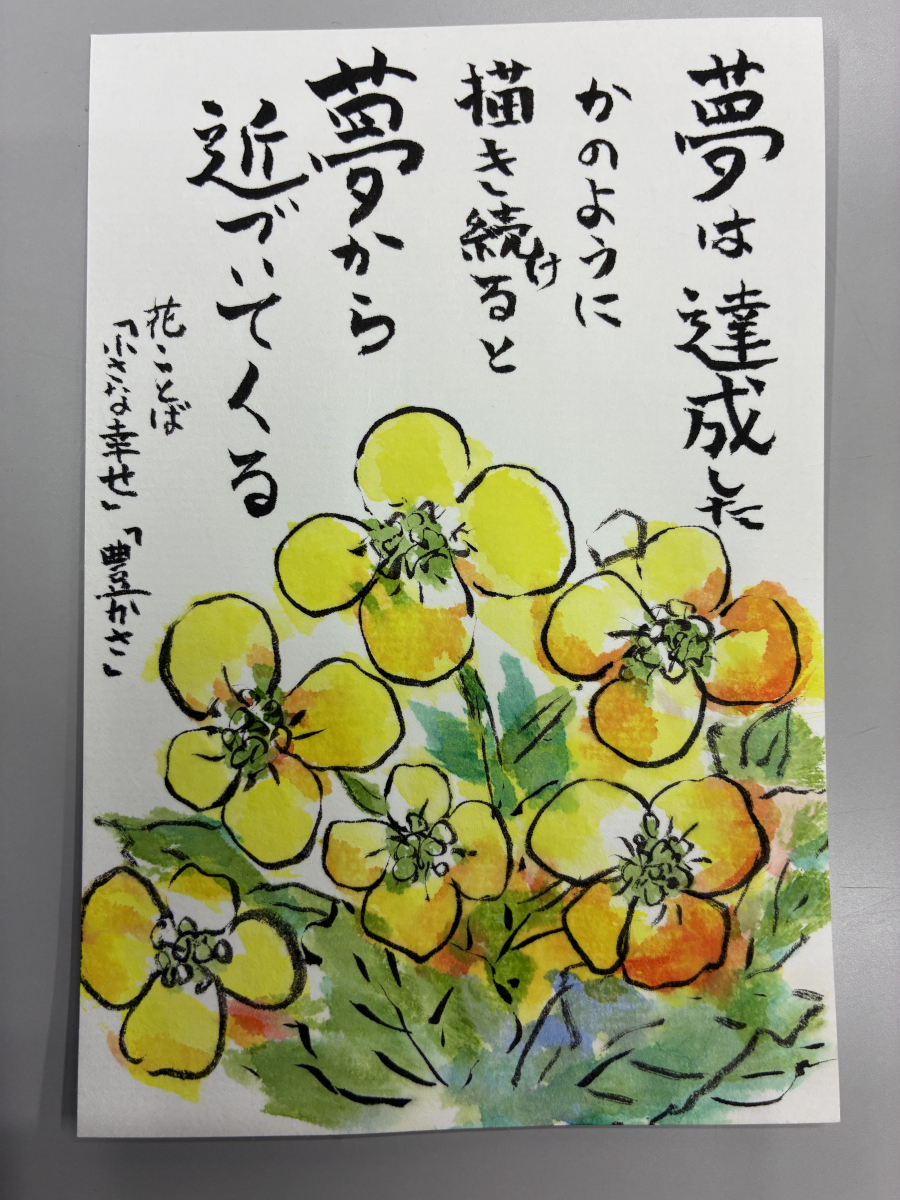 夢は達成した
かのように
描き続けると
夢から
近づいてくる
花ことば
「小さな幸せ」「豊かさ」